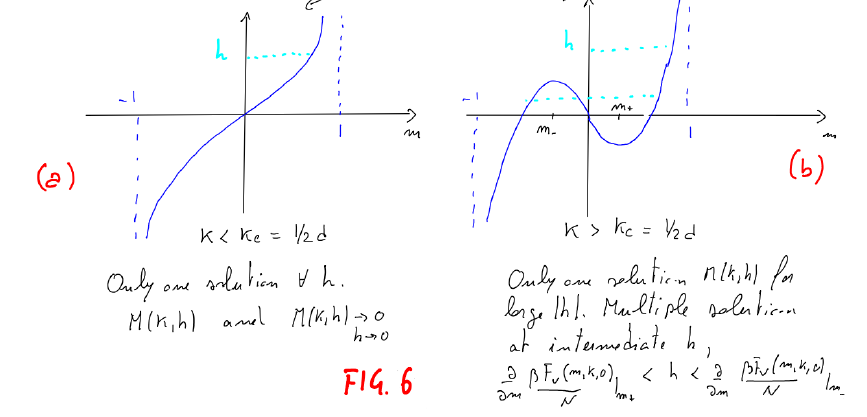 h
-1
1
m
(a)
K < Kc = 1/2d
Only one solution ∀ h.
M(K,h) and M(K,h) → 0
h→0
h
-1
m-
m+
1
m
(b)
K > Kc = 1/2d
Only one solution M(K,h) for
large |h|. Multiple solutions
at intermediate h,
∂/∂m βFv(m,K,0)/N |m+ < h < ∂/∂m βFv(m,K,0)/N |m-
FIG. 6